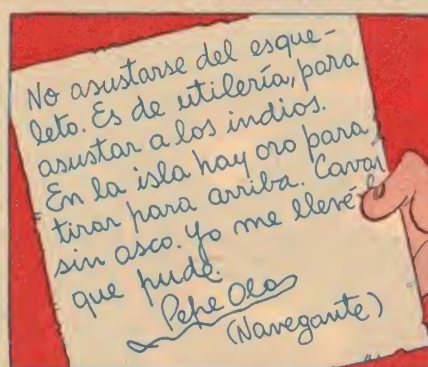 No asustarse del esque-
leto. Es de utilería, para
asustar a los indios.
En la isla hay oro para
tirar para arriba. Cavar
sin asco. Yo me llevé
que pude.
Pepe Olas
(Navegante)